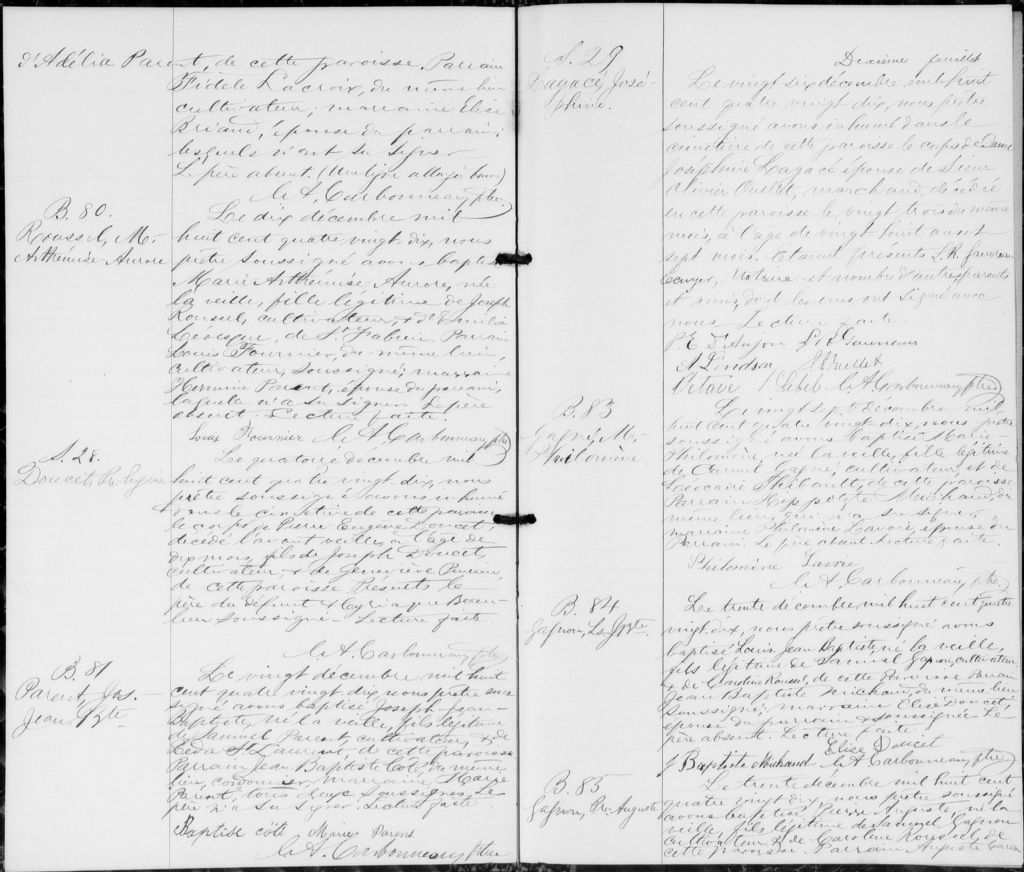 d'Adélia Parent, de cette paroisse. Parrain
Fidèle Lacroix, du même lieu
cultivateur, marraine Elise
Briand, épouse du parrain,
lesquels n'ont su signer
Le père absent. (Une ligne
C. A. Carbonneau ptre
B. 80.
Roussel, M.-
Arthémise Aurore
Le dix décembre mil
huit cent quatre vingt dix, nous
prêtre soussigné avons baptisé
Marie Arthémise Aurore, née
la veille, fille légitime de Joseph
Roussel, cultivateur, & d'Emilia
Lévesque, de St Fabien. Parrain
Louis Fournier, du même lieu,
cultivateur, soussigné, marraine
Hermine Parent, épouse du parrain,
laquelle n'a su signer. Le père
absent. Lecture faite.
Louis Fournier C. A. Carbonneau ptre
S. 28.
Doucet, P. Eugène
Le quatorze décembre mil
huit cent quatre vingt dix, nous
prêtre soussigné avons inhumé
dans le cimetière de cette paroisse
le corps de Pierre Eugène Doucet,
décédé l'avant veille, à l'âge de
dix mois, fils de Joseph Doucet,
cultivateur, & de Geneviève
de cette paroisse. Présents le
père du défunt & Cyriaque Beau-
lieu soussigné. Lecture faite.
C. A. Carbonneau ptre
B. 81
Parent, Jos.-
Jean Bte
Le vingt décembre mil huit
cent quatre vingt dix nous prêtre sous-
signé avons baptisé Joseph Jean-
Baptiste, né la veille, fils légitime
de Samuel Parent, cultivateur, & de
Léda St Laurent de cette paroisse
Parrain Jean Baptiste Coté, du même
lieu, cordonnier, marraine Marie
Parent tous deux soussignés. Le
père n'a su signer. Lecture faite.
Baptise côté Marie Parent
C. A. Carbonneau ptre
Dixième feuillet
S. 29
Lagacé, José-
phine.
Le vingt six décembre mil huit
cent quatre vingt dix, nous prêtre
soussigné avons inhumé dans le
cimetière de cette paroisse le corps de Dame
Joséphine Lagacé épouse de Sieur
Olivier Ouellet, marchand, décédée
en cette paroisse le vingt trois du même
mois, à l'âge de vingt huit ans et
sept mois. Etaient présents L. R. Gauvreau
Ecuyer, Notaire et nombre d'autres parents
et amis, dont les uns ont signé avec
nous. Lecture faite.
L. R. Gauvreau
Octave Lebel C. A. Carbonneau ptre
B. 83
Gagné, M.-
Philomène
Le vingt sept décembre mil
huit cent quatre vingt-dix, nous prêtre
soussigné avons baptisé Marie-
Philomène, née la veille, fille légitime
de Carmel Gagné, cultivateur, et de
Léocadie Thibault, de cette paroisse
Parrain Hippolyte Michaud, du
même lieu, qui n'a su signer,
marraine Philomène Lavoie, épouse du
parrain. Le père absent. Lecture faite.
Philomène Lavoie
C. A. Carbonneau ptre
B. 84
Gagnon, Ls. J. Bte.
Le trente décembre mil huit cent quatre
vingt dix, nous prêtre soussigné avons
baptisé Louis Jean Baptiste, né la veille,
fils légitime de Samuel Gagnon, cultivateur,
& de Caroline Roussel, de cette paroisse Parrain
Jean Baptiste Michaud, du même lieu
soussigné; marraine Elise Doucet,
épouse du parrain & soussignée. Le
père absent. Lecture faite.
Elise Doucet
J Baptiste Michaud C. A. Carbonneau ptre
B. 85
Gagnon, Pre Auguste
Le trente décembre mil huit cent
quatre vingt dix, nous prêtre soussigné
avons baptisé Pierre Auguste, né la
veille, fils légitime de Samuel Gagnon
cultivateur & de Caroline Roussel, de
cette paroisse. Parrain Auguste